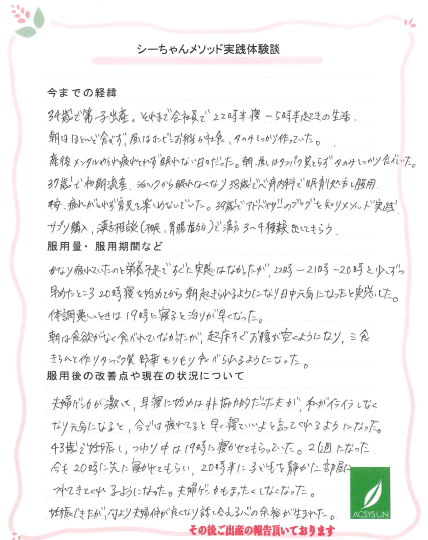 シーちゃんメソッド実践体験談
今までの経緯
34歳で第一子出産。それまで会社員で22時半寝-5時半起きの生活。
朝はほとんど食べず、昼はおにぎりお鍋か社食、夕のみしっかり作っていた。
産後メンタルやられ疲れとれず眠れない日々だった。朝、昼はタンパク質とらず夕のみしっかり食べていた。
37歳で初期流産、ショックから眠れなくなり38歳で心療内科で眠剤処方と服用
疲れがとれず育児を楽しめないでいた。39歳でアドバイザーのブログを知りメソッド実践
サプリ購入、漢方相談(不眠、胃腸虚弱)で漢方3~4種類出してもらう。
服用量・服用期間など
かなり疲れていたのと栄養不足ですぐに実感はなかったが、22時-21時-20時と少しずつ
早めたところ20時寝を始めてから朝起きられるようになり日中元気になったと実感した。
体調悪いときは19時に寝ると治りが早くなった。
朝は食欲がなく食べれていなかったが、起床すぐお腹が空くようになり、三食
きちんと作りタンパク質野菜もりもり食べられるようになった。
服用後の改善点や現在の状況について
夫婦ゲンカが激減し、早寝に始めは非協力的だった夫が、私がイライラしなく
なり元気になると、今では疲れてると早く寝ていいよと言ってくれるようになった。
43歳で妊娠し、つわり中は19時に寝かせてもらっていた。2俵になった
今も20時に先に寝かせてもらい、20時半に子どもを静かに部屋に
つれてきてくれるようになった。夫婦ゲンカもまったくしなくなった。
妊娠できたが、何より夫婦仲が良くなり話し合える心の余裕が生まれた。
ACSYS UN
その後ご出産の報告頂いております